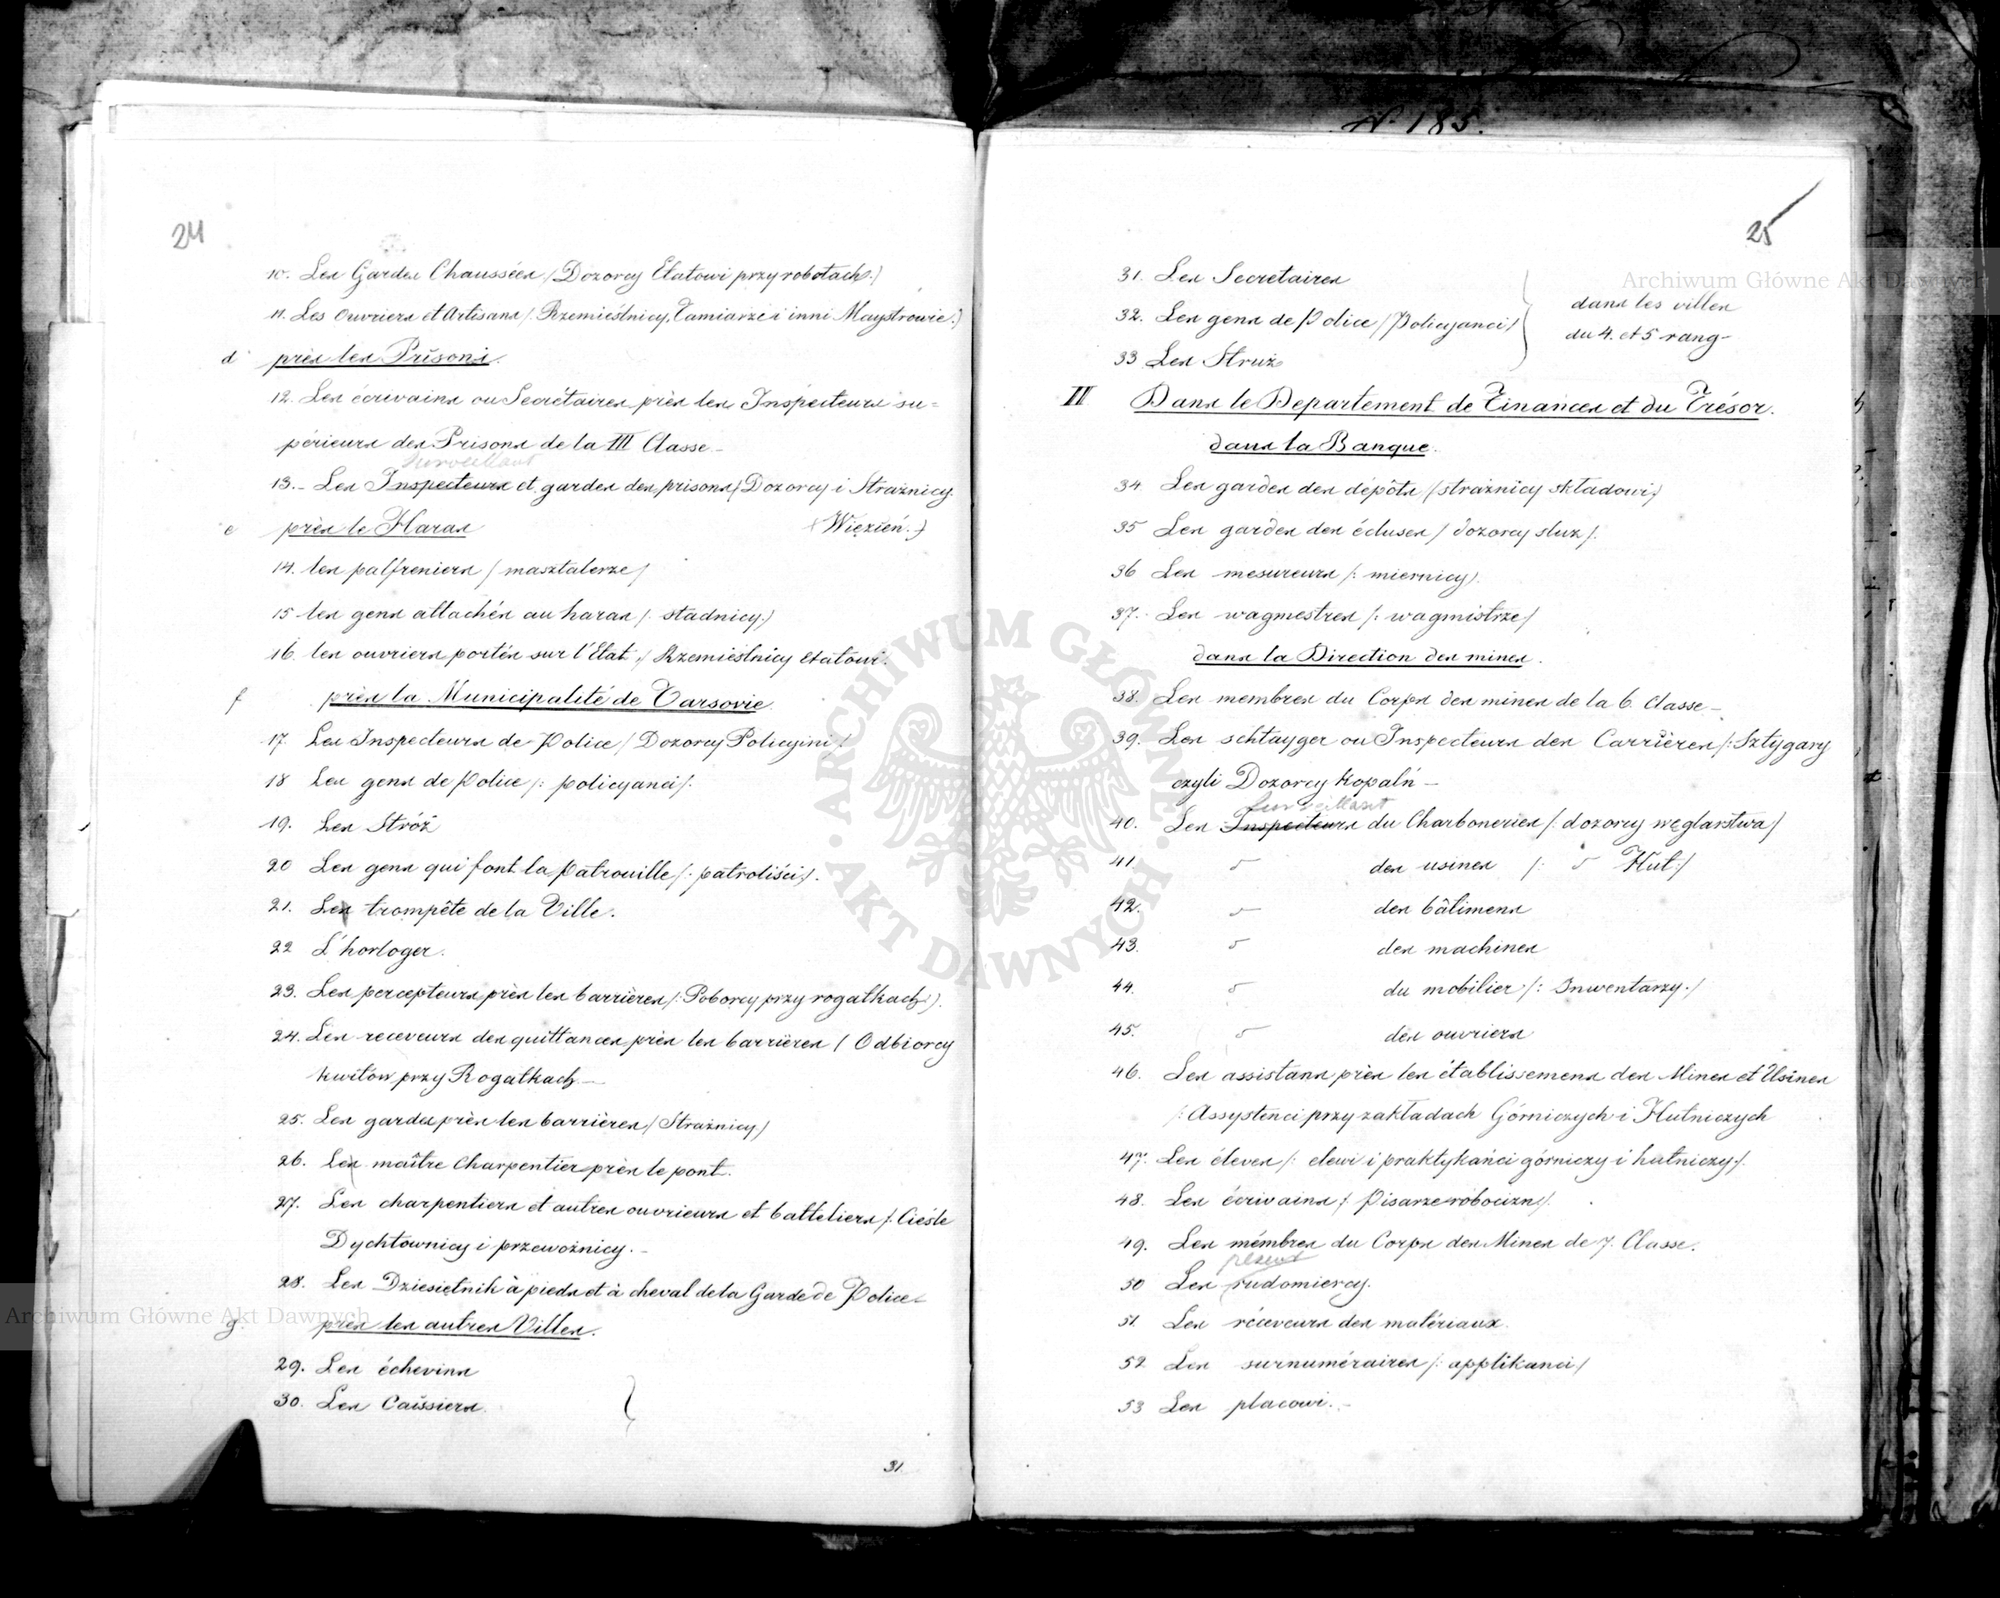 24
10. Les Gardes Chaussées /Dozorcy Etatowi przy robotach./
11. Les Ouvriers et Artisans /. Rzemieślnicy, Tamiarze i inni Maystrowie./
d près les Prisons.
12. Les écrivains ou Secrétaires près les Inspecteurs su=
périeurs des Prisons de la III Classe -
Surveillant
13. - Les Inspecteurs et gardes des prisons / Dozorcy i Strażnicy
Więzień./
e près le Haras
14. les palfreniers / masztalerze /
15 les gens attachés au haras /. stadnicy./
16. les ouvriers portés sur l'Etat, / Rzemieślnicy etatowi.
f près la Municipalité de Varsovie
17 Les Inspecteurs de Police / Dozorcy Policyini /.
18 Les gens de Police /: policyanci /.
19. Les Stróż
20 Les gens qui font la Patrouille /. patroliści /.
21. Les trompête de la Ville.
22 L'horloger.
23. Les percepteurs près les barrières /: Poborcy przy rogatkach /.
24. Les receveurs des quittances près les barrières / Odbiorcy
kwitów przy Rogatkach -
25. Les gardes près les barrières / Strażnicy./
26. Les maître Charpentier près le pont.
27. Les charpentiers et autres ouvrieurs et batteliers /. Cieśle
Dychtownicy i przewoźnicy. -
28. Les Dziesiętnik à pieds et à cheval de la Garde de Police -
g. près les autres Villes.
29. Les échevins
30. Les Caissiers.
31
N. 185.
25
31. Les Secretaires
32. Les gens de Police / Policyanci /
33 Les Struż
dans les villes
du 4. et 5 rang -
II Dans le Departement de Finances et du Trésor.
dans la Banque.
34. Les gardes des dépôts / strażnicy składowi /
35 Les gardes des écluses / dozorcy sluz /.
36 Les mesureurs /: miernicy).
37. Les wagmestres /: wagmistrze /
dans la Direction des mines.
38. Les membres du Corps des mines de la 6. Classe -
39. Les schtayger ou Inspecteurs des Carrières /: Sztygary
czyli Dozorcy Kopalń -
Surveillant
40. Les Inspecteurs du Charboneries /: dozorcy węglarstwa /
41. " des usines /: " Hut./
42. " des bâtimens
43. " des machines
44. " du mobilier /: Inwentarzy./
45. " des ouvriers
46. Les assistans près les établissemens des Mines et Usines
/: Assystenci przy zakładach Górniczych i Hutniczych
47. Les éleves /: elewi i praktykańci górniczy i hutniczy /.
48. Les écrivains /. Pisarze robocizn /.
49. Les mémbres du Corps des Mines de 7. Classe.
50 Les rudomiercy.
51. Les réceveurs des matériaux.
52 Les surnuméraires /: applikanci /
53 Les placowi. -
Archiwum Główne Akt Dawnych
Archiwum Główne Akt Dawnych
ARCHIWUM GŁÓWNE · AKT DAWNYCH ·